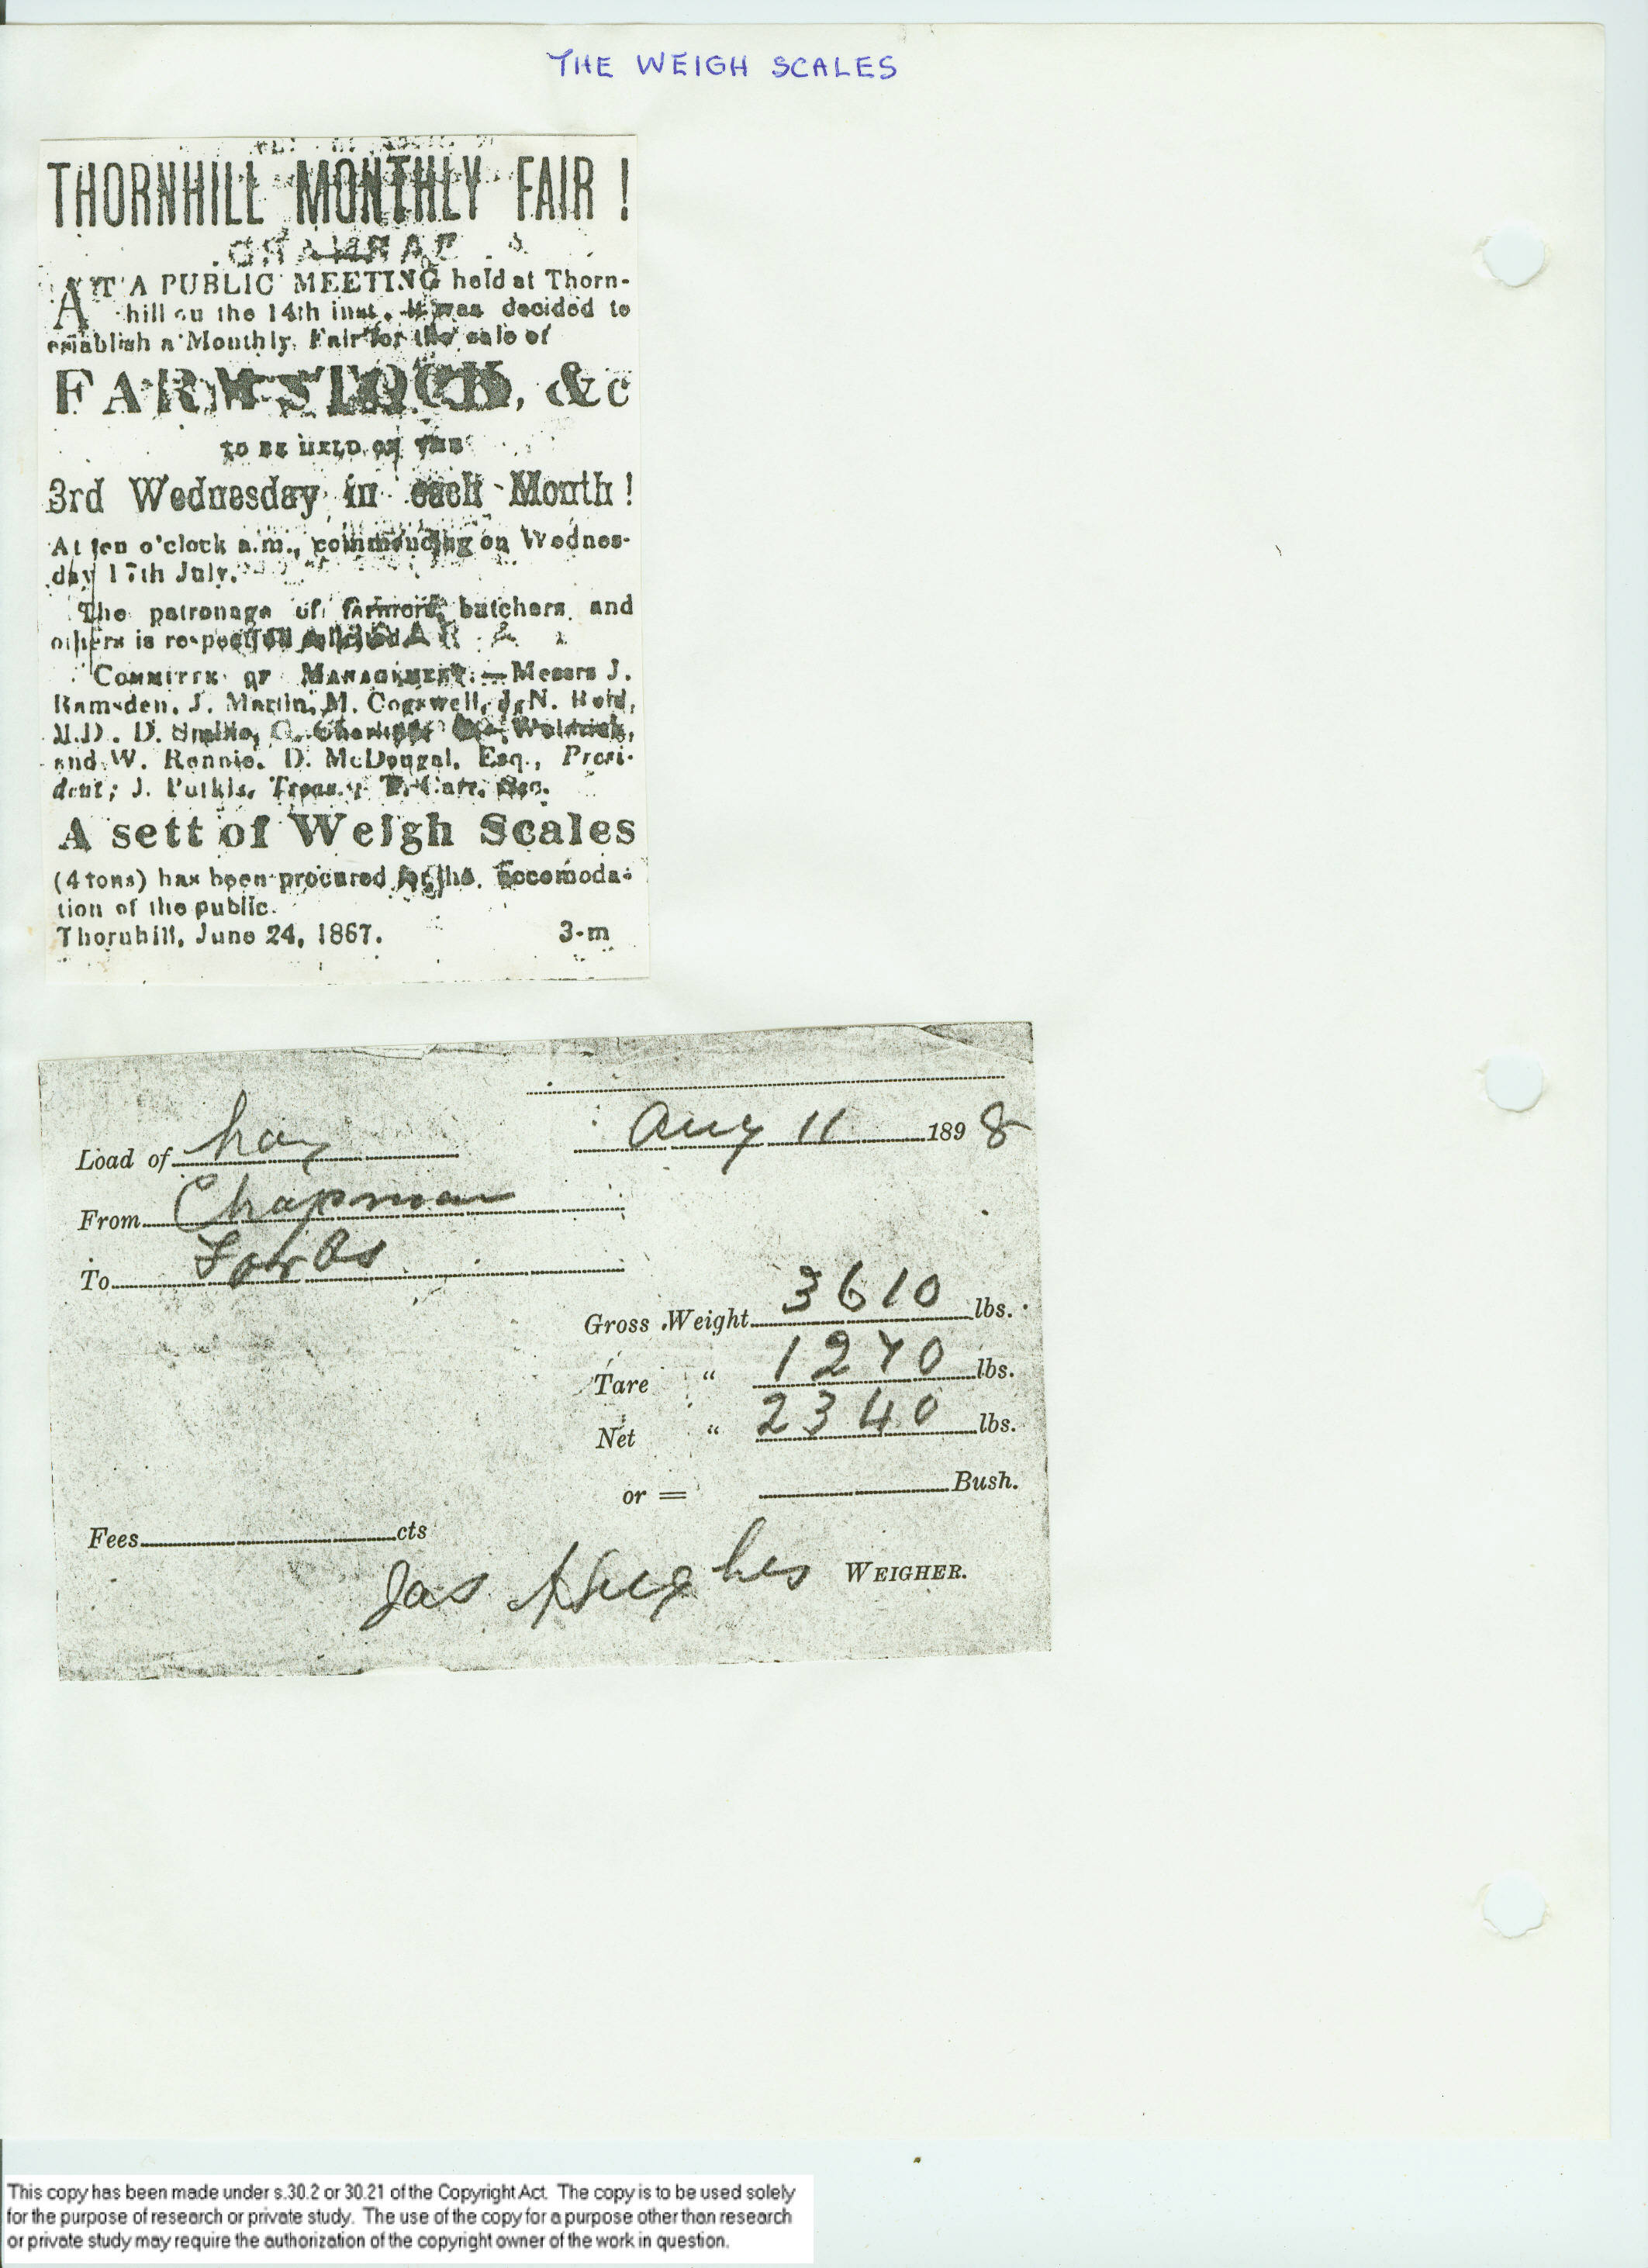 THE WEIGH SCALES
THORNHILL MONTHLY FAIR !
AT A PUBLIC MEETING held at Thorn-
hill on the 14th inst. It was decided to
establish a Monthly Fair for the sale of
FARM STOCK, &c
TO BE HELD ON THE
3rd Wednesday in each Month !
At ten o'clock a.m., commencing on Wednes-
day 17th July.
The patronage of farmers, butchers and
others is respectfully solicited
COMMITTE OF MANAGEMENT.—Messrs J.
Ramsden, J. Martin, M. Cogswell, J. N. Reid,
M.D. D. Smilie,
and W. Rennie. D. McDougal, Esq., Presi-
dent; J. Purkis, Treas.; T. Carr, Sec.
A sett of Weigh Scales
(4 tons) has been procured for the accomoda-
tion of the public.
Thornhill, June 24, 1867. 3-m
Aug 11 1898
Load of hay
From Chapman
To Forbs
Gross Weight 3610 lbs.
Tare " 1270 lbs.
Net " 2340 lbs.
or = Bush.
Fees cts
Jas Hughes WEIGHER.
This copy has been made under s.30.2 or 30.21 of the Copyright Act. The copy is to be used solely
for the purpose of research or private study. The use of the copy for a purpose other than research
or private study may require the authorization of the copyright owner of the work in question.